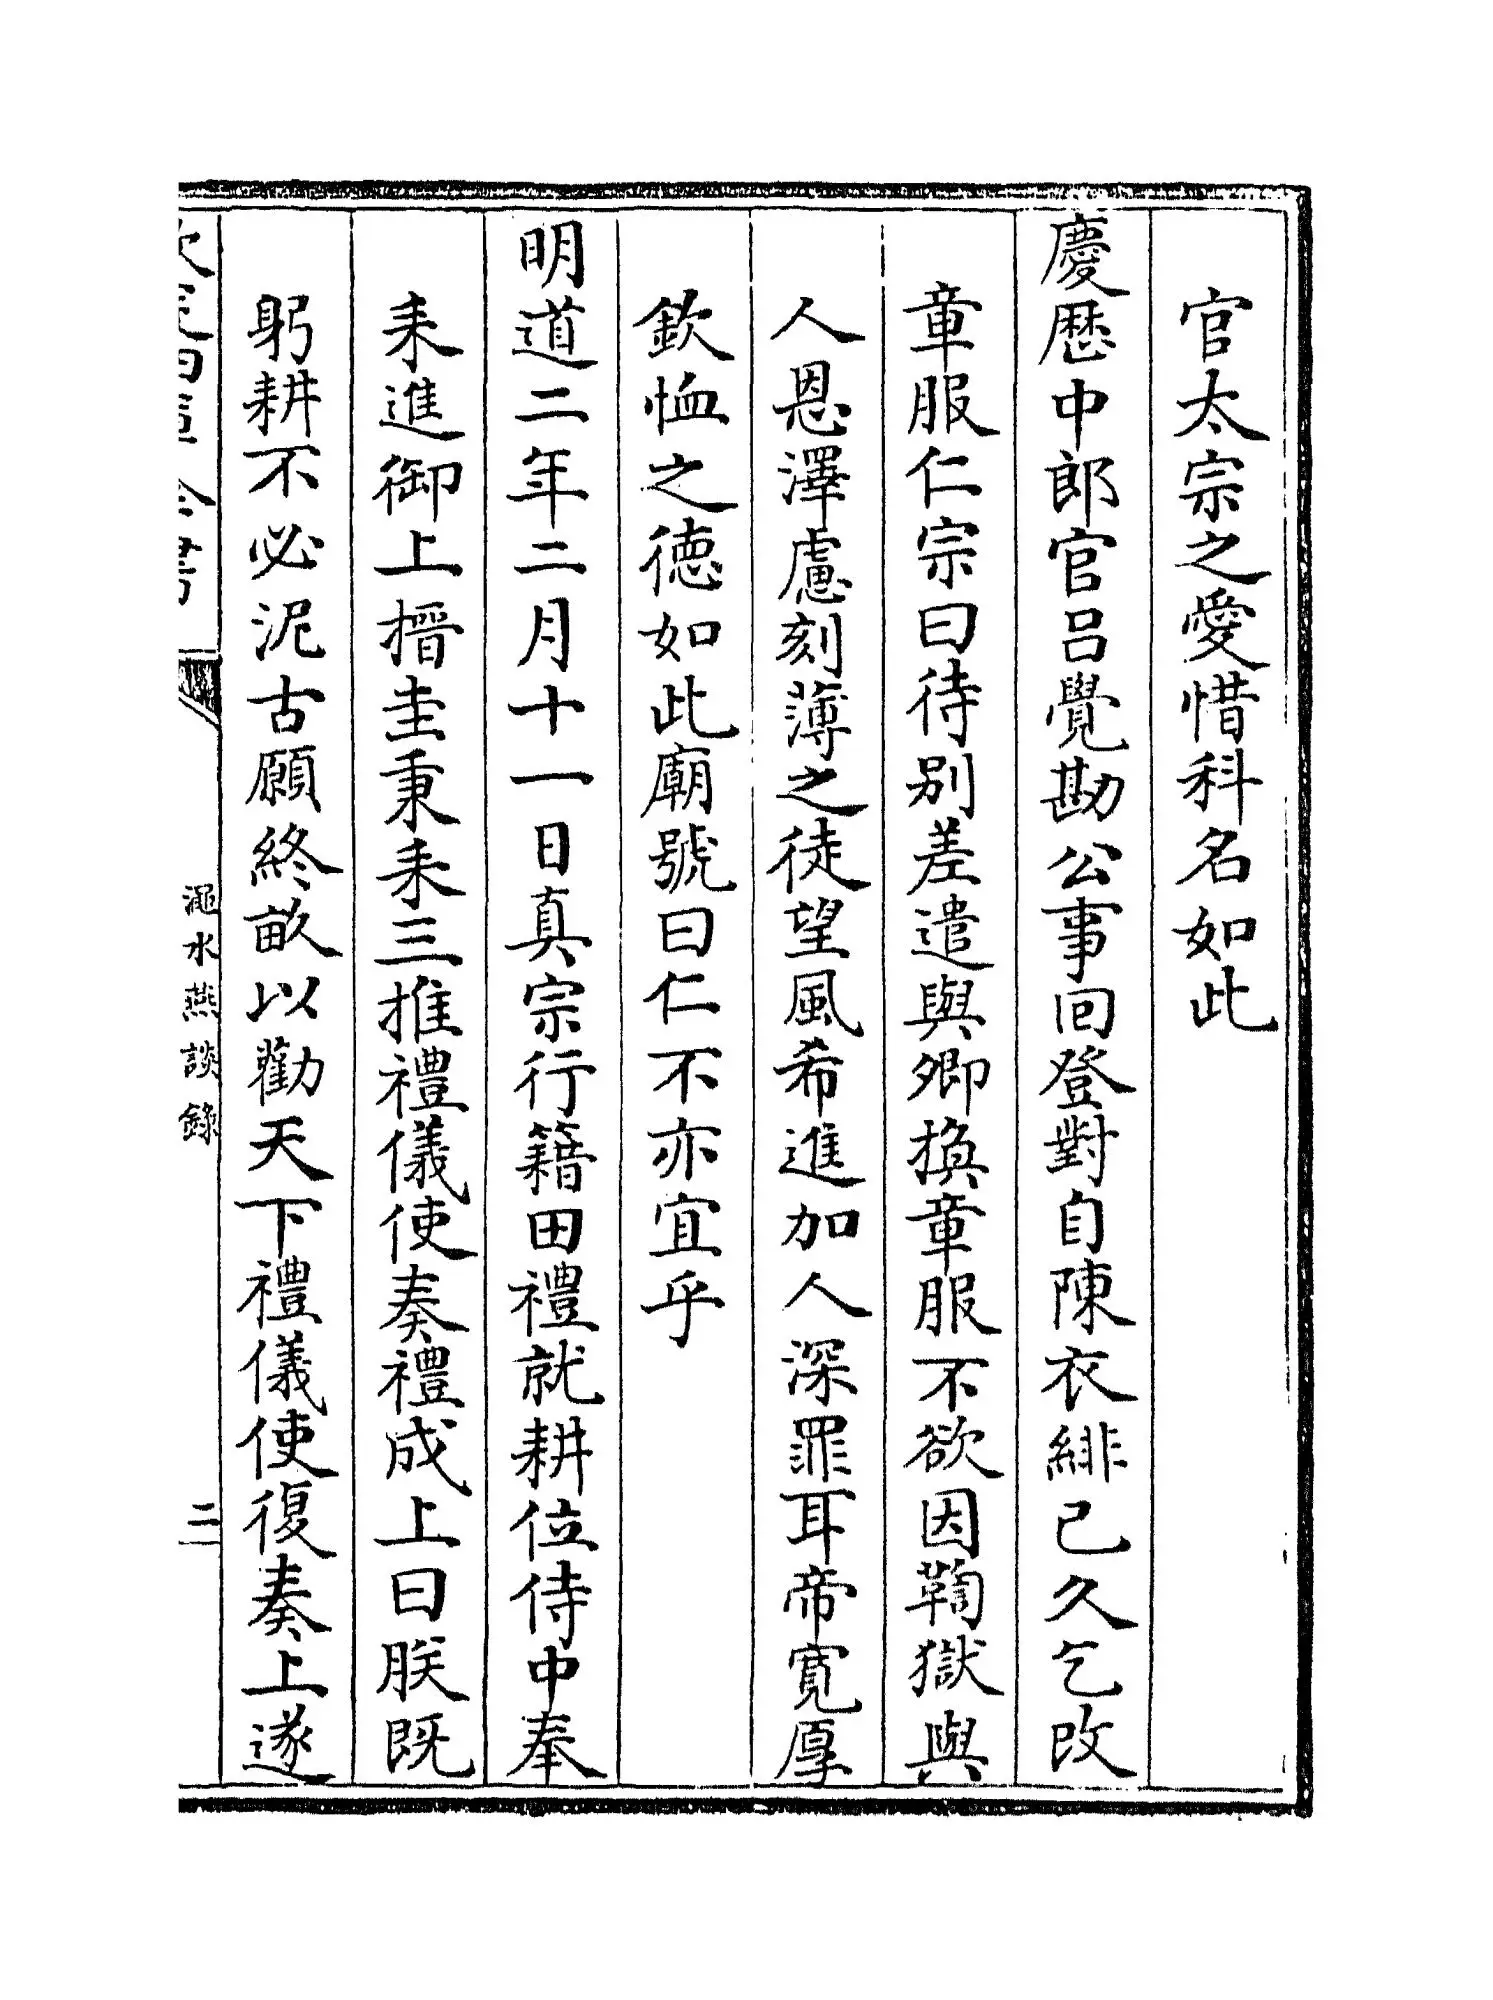 官太宗之愛惜科名如此
慶歷中郎官呂覺勘公事回登對自陳衣緋已久乞改
章服仁宗曰待别差遣與卿換章服不欲因鞫獄與
人恩澤慮刻薄之徒望風希進加人深罪耳帝寛厚
欽恤之徳如此廟號曰仁不亦宜乎
明道二年二月十一日真宗行籍田禮就耕位侍中奉
耒進御上搢圭秉耒三推禮儀使奏禮成上曰朕既
躬耕不必泥古願終畝以勸天下禮儀使復奏上遂
欽定四庫全書
澠水燕談錄
二